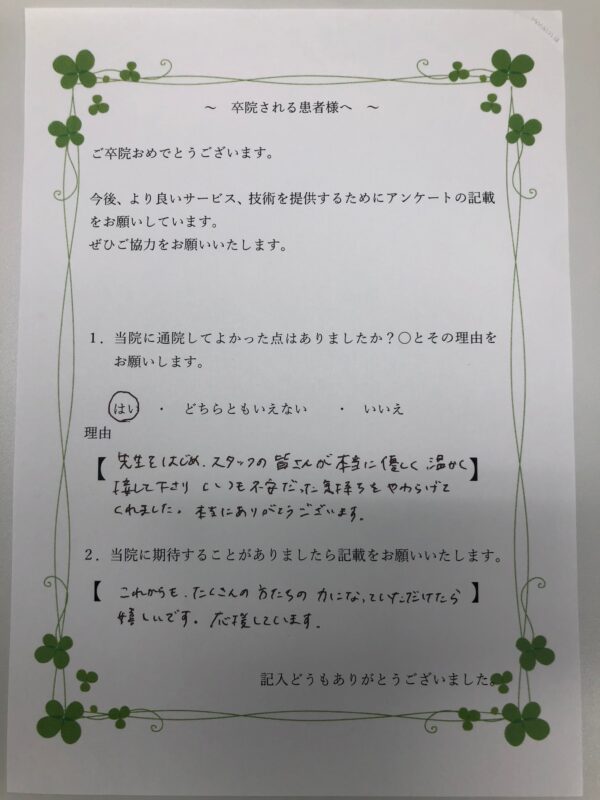 ～ 卒院される患者様へ ～
ご卒院おめでとうございます。
今後、より良いサービス、技術を提供するためにアンケートの記載
をお願いしています。
ぜひご協力をお願いいたします。
1．当院に通院してよかった点はありましたか？〇とその理由を
お願いします。
はい ・ どちらともいえない ・ いいえ
理由
【先生をはじめ、スタッフの皆さんが本当に優しく温かく】
接して下さり いつも不安だった気持ちをやわらげて
くれました。本当にありがとうございます。
2．当院に期待することがありましたら記載をお願いいたします。
【これからも、たくさんの方たちの力になっていただけたら】
嬉しいです。応援しています。
記入どうもありがとうございました。